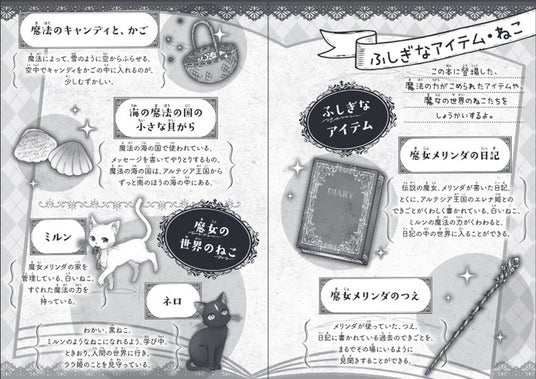 ふしぎなアイテム・ねこ
この本に登場した、
魔法の力がこめられたアイテムや、
魔女の世界のねこたちを
しょうかいするよ。
ふしぎな
アイテム
魔女メリンダの日記
伝説の魔女、メリンダが書いた日記。
とくに、アルテシア王国のエレナ姫との
できごとがくわしく書かれている。白いねこ、
ミルンの魔法の力がくわわると、
日記の中の世界に入ることができる。
DIARY
魔女メリンダのつえ
メリンダが使っていた、つえ。
日記に書かれている過去のできごとを、
まるでその場にいるように
見聞きすることができる。
魔法のキャンディと、かご
魔法によって、雪のように空からふらせる。
空中でキャンディをかごの中に入れるのが、
少しむずかしい。
海の魔法の国の
小さな貝がら
海の魔法の国で使われている。
メッセージを書いてやりとりするもの。
海の魔法の国は、アルテシア王国から
ずっと南のほうの海の中にある。
魔女の
世界のねこ
ミルン
魔女メリンダの家を
管理している、白いねこ。
すぐれた魔法の力を
持っている。
ネロ
わかい、黒ねこ。
ミルンのようなねこになれるよう、学び中。
ときおり、人間の世界に行き、
ララ姫のことを見守っている。